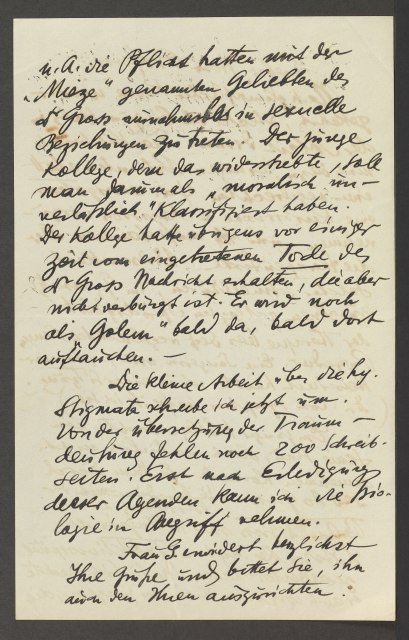 u. A. die Pflicht hatten mit der
„Mieze" genannten Geliebten des
Dr Gross ausnahmslos in sexuelle
Beziehungen zu treten. Der junge
Kollege, dem das widerstrebte, soll
man damals „moralisch un-
verläßlich" klassifiziert haben.
Der Kollege hatte übrigens vor einiger
Zeit vom eingetretenen Tode des
Dr Gross Nachricht erhalten, die aber
nicht verbürgt ist. Er wird noch
als „Golem" bald da, bald dort
auftauchen. —
Die kleine Arbeit über die hy.
Stigmata schreibe ich jetzt um.
Von der Übersetzung der Traum-
deutung fehlen noch 200 Schreib-
seiten. Erst nach Erledigung
dieser Agenden kann ich die Bio-
logie in Angriff nehmen.
Frau G. erwidert herzlichst
Ihre Grüße und bittet Sie, ihn
auch den Ihren auszurichten.